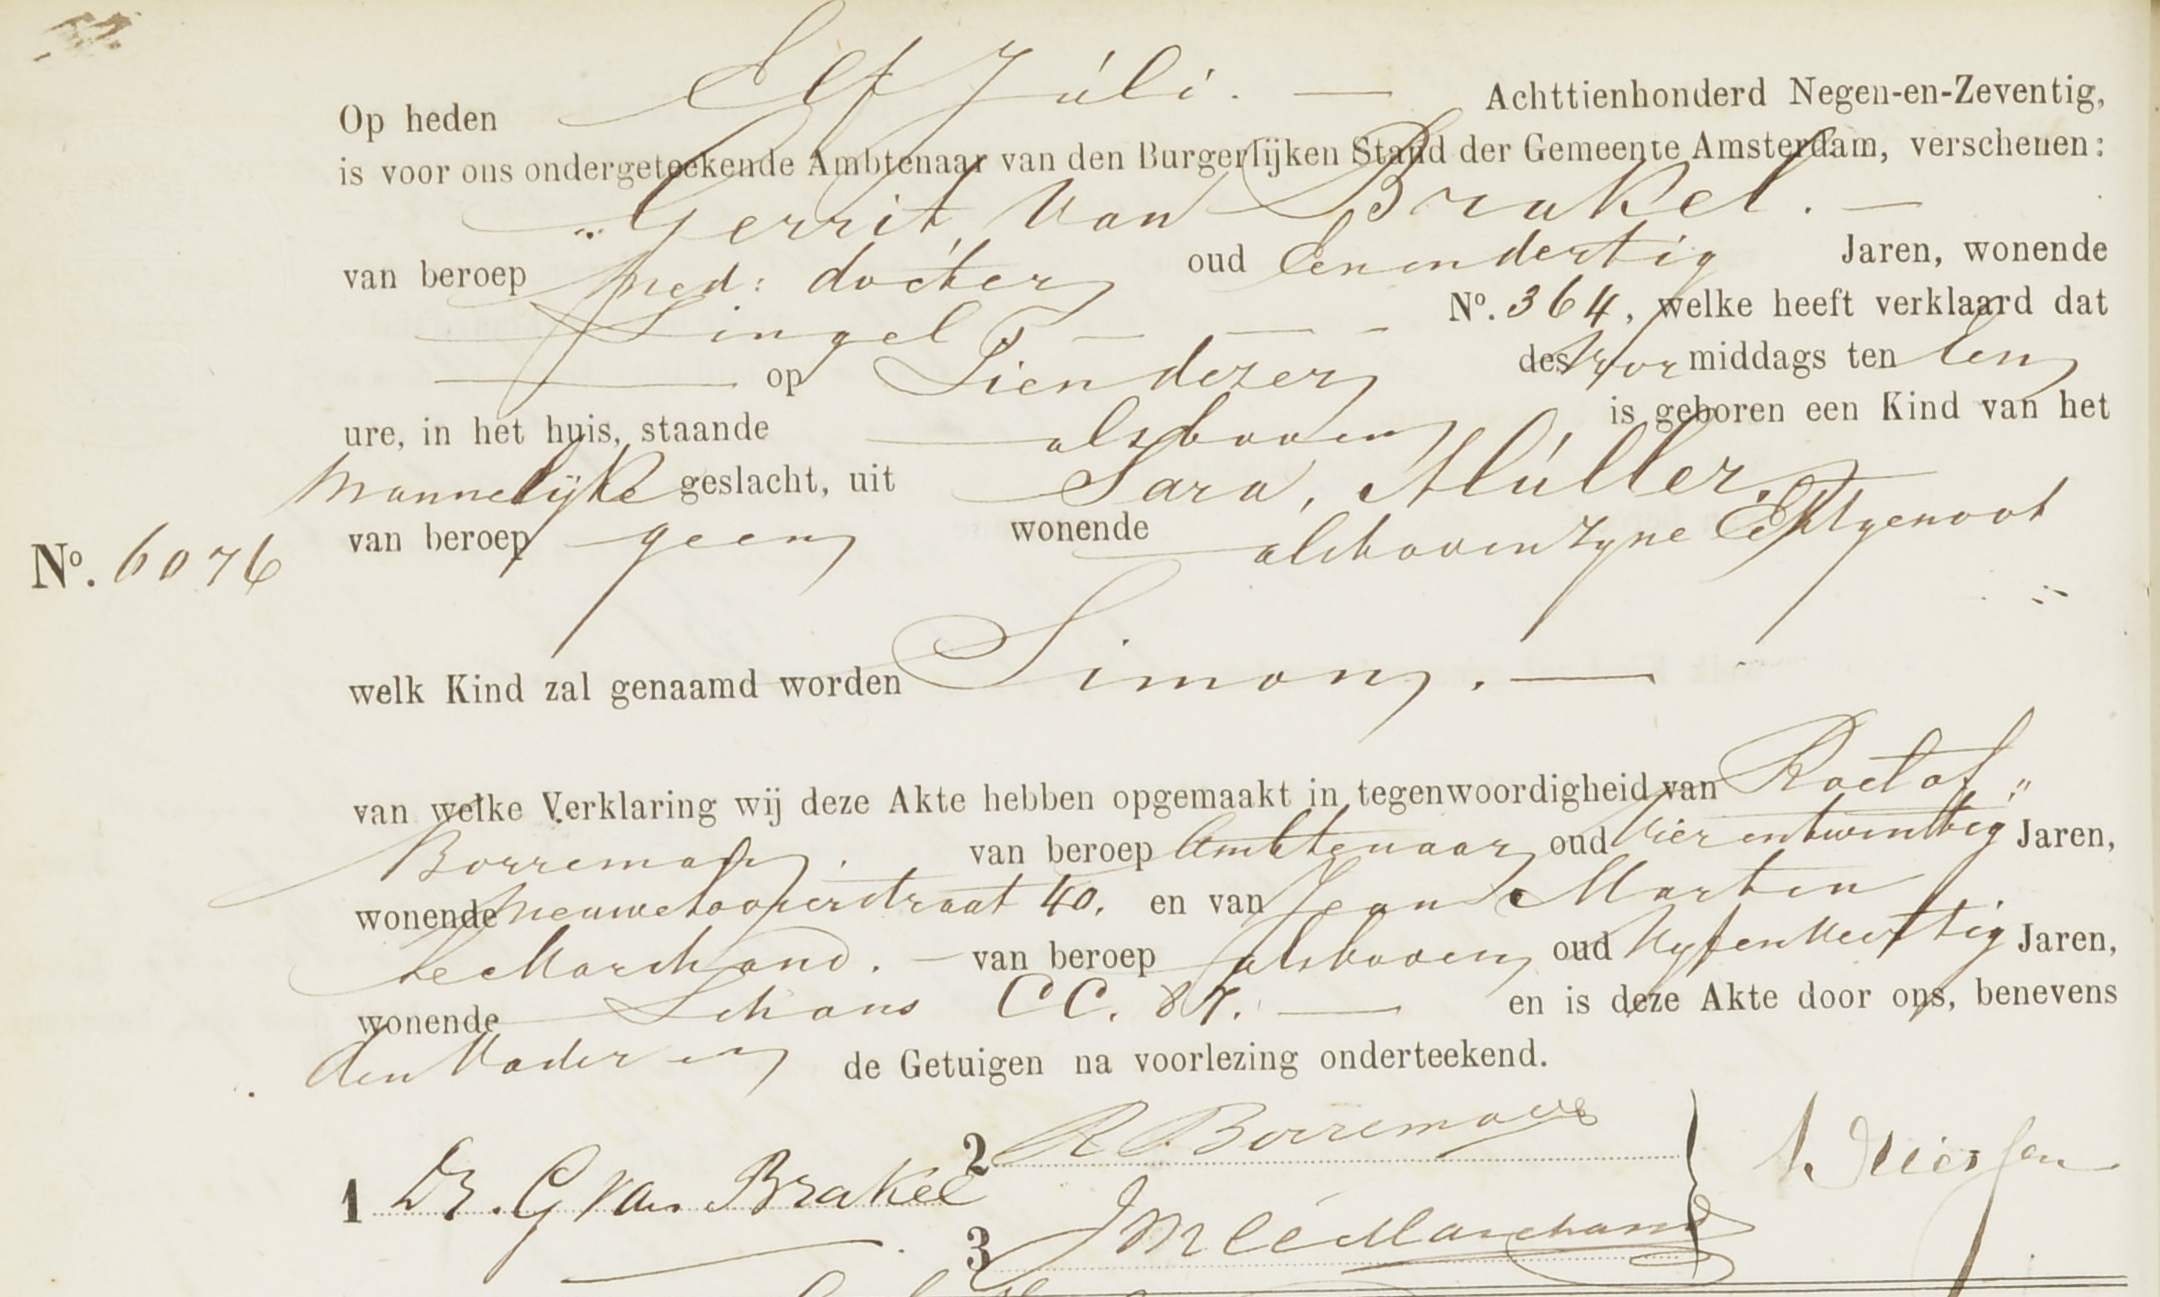 Op heden Elf Júli. — Achttienhonderd Negen-en-Zeventig,
is voor ons ondergeteekende Ambtenaar van den Burgerlijken Stand der Gemeente Amsterdam, verschenen:
Gerrit, van Brakel. —
van beroep med: docter oud Eenendertig Jaren, wonende
Singel — — - No. 364, welke heeft verklaard dat
— op Tien dezer des voor middags ten een
ure, in het huis, staande alsboven is geboren een Kind van het
mannelijke geslacht, uit Sara, Müller,
No. 6076 van beroep geen wonende alsboven zyne Echtgenoot
welk Kind zal genaamd worden Simon. —
van welke Verklaring wij deze Akte hebben opgemaakt in tegenwoordigheid van Roelof „
Borremans. van beroep Ambtenaar oud Vierentwintig Jaren,
wonende Nieuwelooierstraat 40. en van Jean Marten
Le Marchand. — van beroep alsboven oud Vyfenveertig Jaren,
wonende Schans CC. 87. — en is deze Akte door ons, benevens
den Vader en de Getuigen na voorlezing onderteekend.
2 R. Borremans
1 Dr. G van Brakel
3 J M Le Marchand